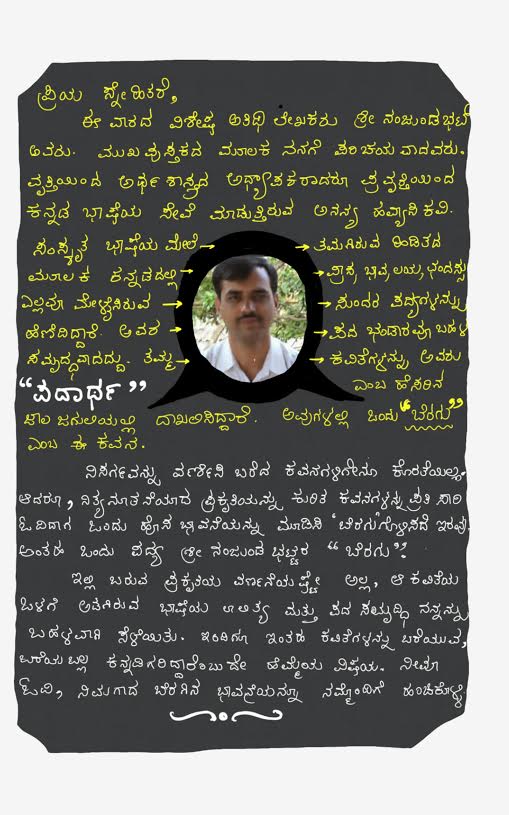 ಪ್ರಿಯ ಸ್ನೇಹಿತರೆ,
ಈ ವಾರದ ವಿಶೇಷ ಅತಿಥಿ ಲೇಖಕರು ಶ್ರೀ ನಂಜುಂಡ ಭಟ್
ಅವರು. ಮುಖಪುಸ್ತಕದ ಮೂಲಕ ನನಗೆ ಪರಿಚಯವಾದವರು.
ವೃತ್ತಿಯಿಂದ ಅರ್ಥಶಾಸ್ತ್ರದ ಅಧ್ಯಾಪಕರಾದರೂ ಪ್ರವೃತ್ತಿಯಿಂದ
ಕನ್ನಡ ಭಾಷೆಯ ಸೇವೆ ಮಾಡುತ್ತಿರುವ ಅನನ್ಯ ಹವ್ಯಾಸಿ ಕವಿ.
ಸಂಸ್ಕೃತ ಭಾಷೆಯ ಮೇಲೆ → ತಮಗಿರುವ ಹಿಡಿತದ
ಮೂಲಕ ಕನ್ನಡದಲ್ಲಿ → ಪ್ರಾಸ, ಭಾವ, ಲಯ, ಛಂದಸ್ಸು
ಎಲ್ಲವೂ ಮೇಳೈಸಿರುವ → ಸುಂದರ ಪದ್ಯಗಳನ್ನು
ಹೆಣೆದಿದ್ದಾರೆ. ಅವರ → ಪದ ಭಂಡಾರವೂ ಬಹಳ
ಸಮೃದ್ಧವಾದದ್ದು. ತಮ್ಮ → ಕವಿತೆಗಳನ್ನು ಅವರು
“ಪದಾರ್ಥ” ಎಂಬ ಹೆಸರಿನ
ಜಾಲ ಜಗುಲಿಯಲ್ಲಿ ದಾಖಲಿಸಿದ್ದಾರೆ. ಅವುಗಳಲ್ಲಿ ಒಂದು “ಬೆರಗು”
ಎಂಬ ಈ ಕವನ.
ನಿಸರ್ಗವನ್ನು ವರ್ಣಿಸಿ ಬರೆದ ಕವನಗಳಿಗೇನೂ ಕೊರತೆಯಿಲ್ಲ.
ಆದರೂ, ನಿತ್ಯನೂತನೆಯಾದ ಪ್ರಕೃತಿಯನ್ನು ಕುರಿತ ಕವನಗಳನ್ನು ಪ್ರತಿ ಸಾರಿ
ಓದಿದಾಗ ಒಂದು ಹೊಸ ಭಾವನೆಯನ್ನು ಮೂಡಿಸಿ 'ಬೆರಗು'ಗೊಳ್ಳಿಸದೆ ಇರವು.
ಅಂತಹ ಒಂದು ಪದ್ಯ ಶ್ರೀ ನಂಜುಂಡ ಭಟ್ಟರ “ಬೆರಗು”.
ಇಲ್ಲಿ ಬರುವ ಪ್ರಕೃತಿಯ ವರ್ಣನೆಯಷ್ಟೇ ಅಲ್ಲ, ಆ ಕವಿತೆಯ
ಒಳಗೆ ಅಡಗಿರುವ ಭಾಷೆಯ ಲಾಲಿತ್ಯ ಮತ್ತು ಪದ ಸಮೃದ್ಧಿ ನನ್ನನ್ನು
ಬಹಳವಾಗಿ ಸೆಳೆಯಿತು. ಇಂದಿಗೂ ಇಂತಹ ಕವಿತೆಗಳನ್ನು ಬರೆಯುವ,
ಬರೆಯಬಲ್ಲ ಕನ್ನಡಿಗರಿದ್ದಾರೆಂಬುದೇ ಹೆಮ್ಮೆಯ ವಿಷಯ. ನೀವೂ
ಓದಿ, ನಿಮಗಾದ ಬೆರಗಿನ ಭಾವನೆಯನ್ನೂ ನಮ್ಮೊಂದಿಗೆ ಹಂಚಿಕೊಳ್ಳಿ.